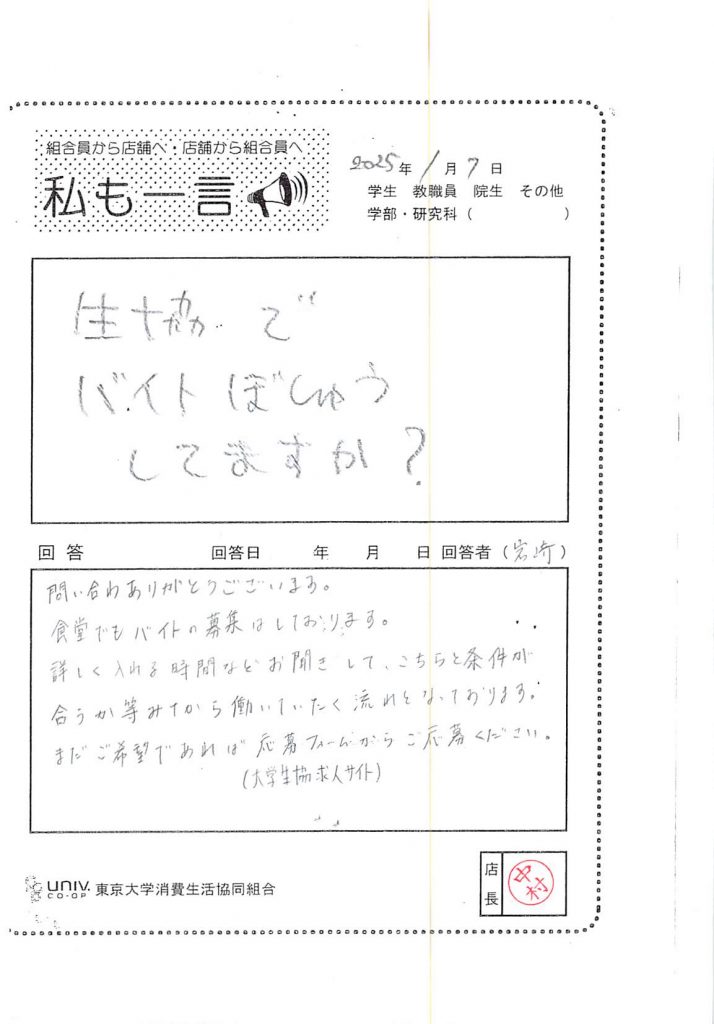 組合員から店舗へ・店舗から組合員へ
私も一言
2025年 1月 7日
学生 教職員 院生 その他
学部・研究科( )
生協で
バイトぼしゅう
してますか?
回答 回答日 年 月 日 回答者(岩崎)
問い合わありがとうございます。
食堂でもバイトの募集はしております。
詳しく入れる時間などお聞きして、こちらと条件が
合うか等みてから働いていたく流れとなっております。
まだご希望であれば応募フォームからご応募ください。
(大学生協求人サイト)
UNIV. CO-OP 東京大学消費生活協同組合
店長
中村